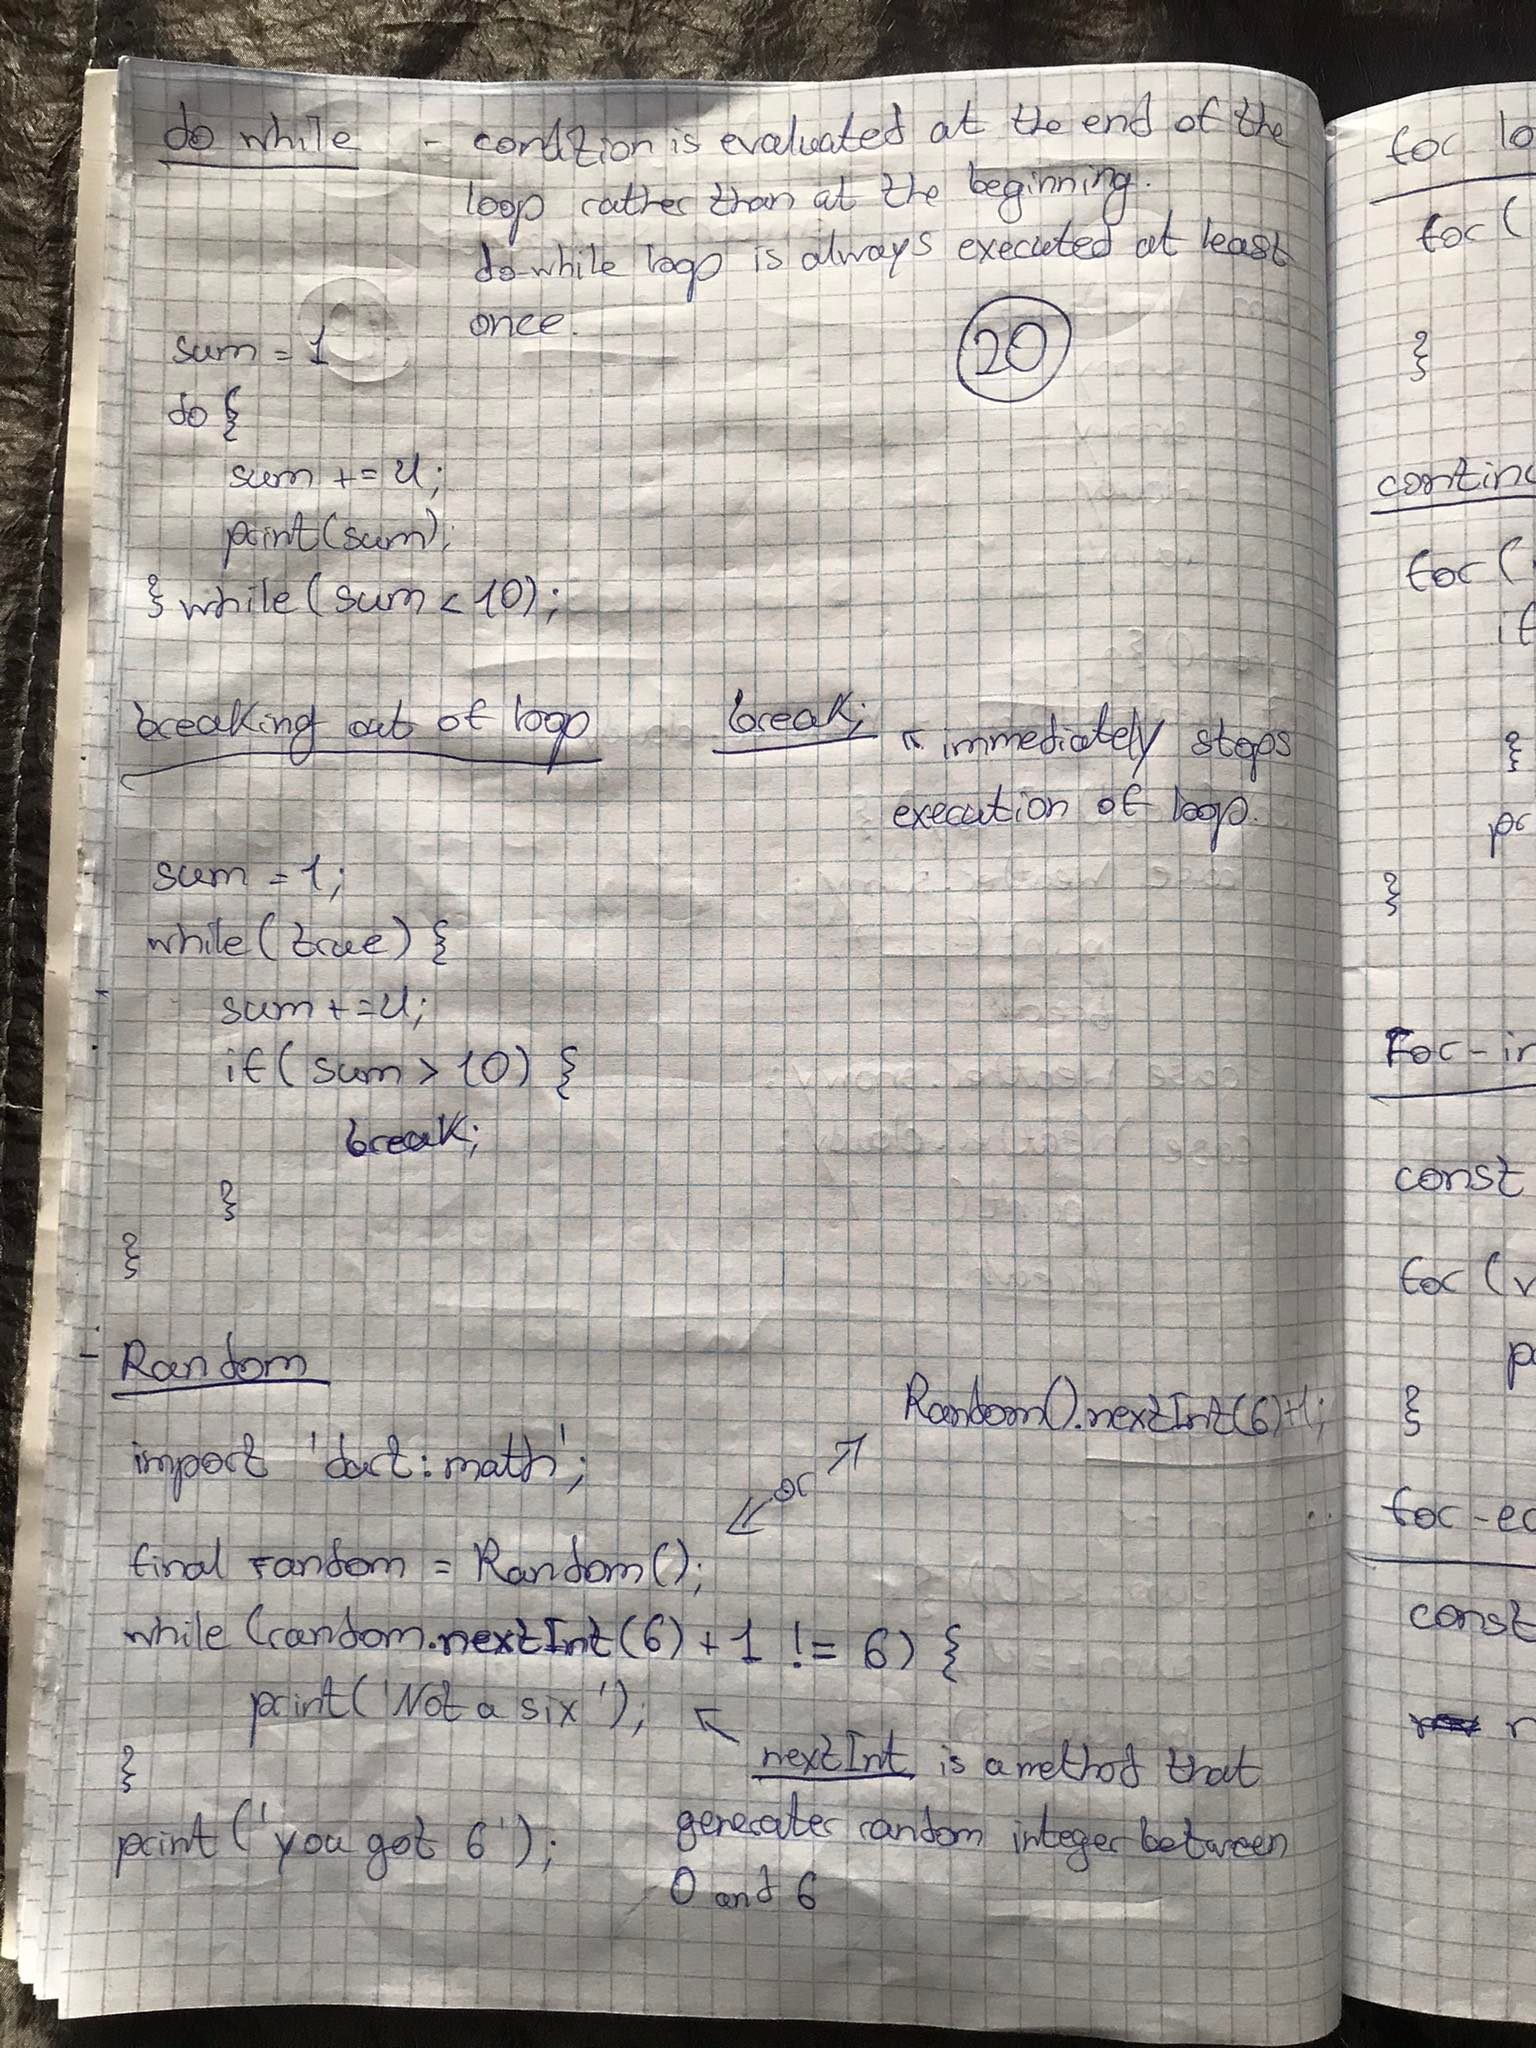 do while - condition is evaluated at the end of the
loop rather than at the beginning.
do-while loop is always executed at least
once.
20
sum = 1
do {
sum += 4;
print(sum);
} while (sum < 10);
breaking out of loop
break;
immediately stops
execution of loop.
sum = 1;
while (true) {
sum += 4;
if (sum > 10) {
break;
}
}
- Random
Random().nextInt(6)+1;
import 'dart:math';
or
final random = Random();
while (random.nextInt(6) + 1 != 6) {
print('Not a six');
}
nextInt is a method that
generates random integer between
0 and 6
print('you got 6');
for
for (
}
for (
if
}
}
For-in
const
for (
}
const